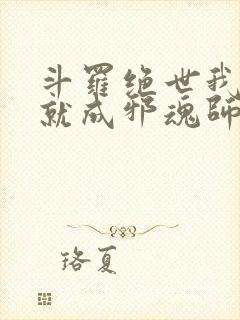 斗羅绝世我
就成邪魂師
珞夏